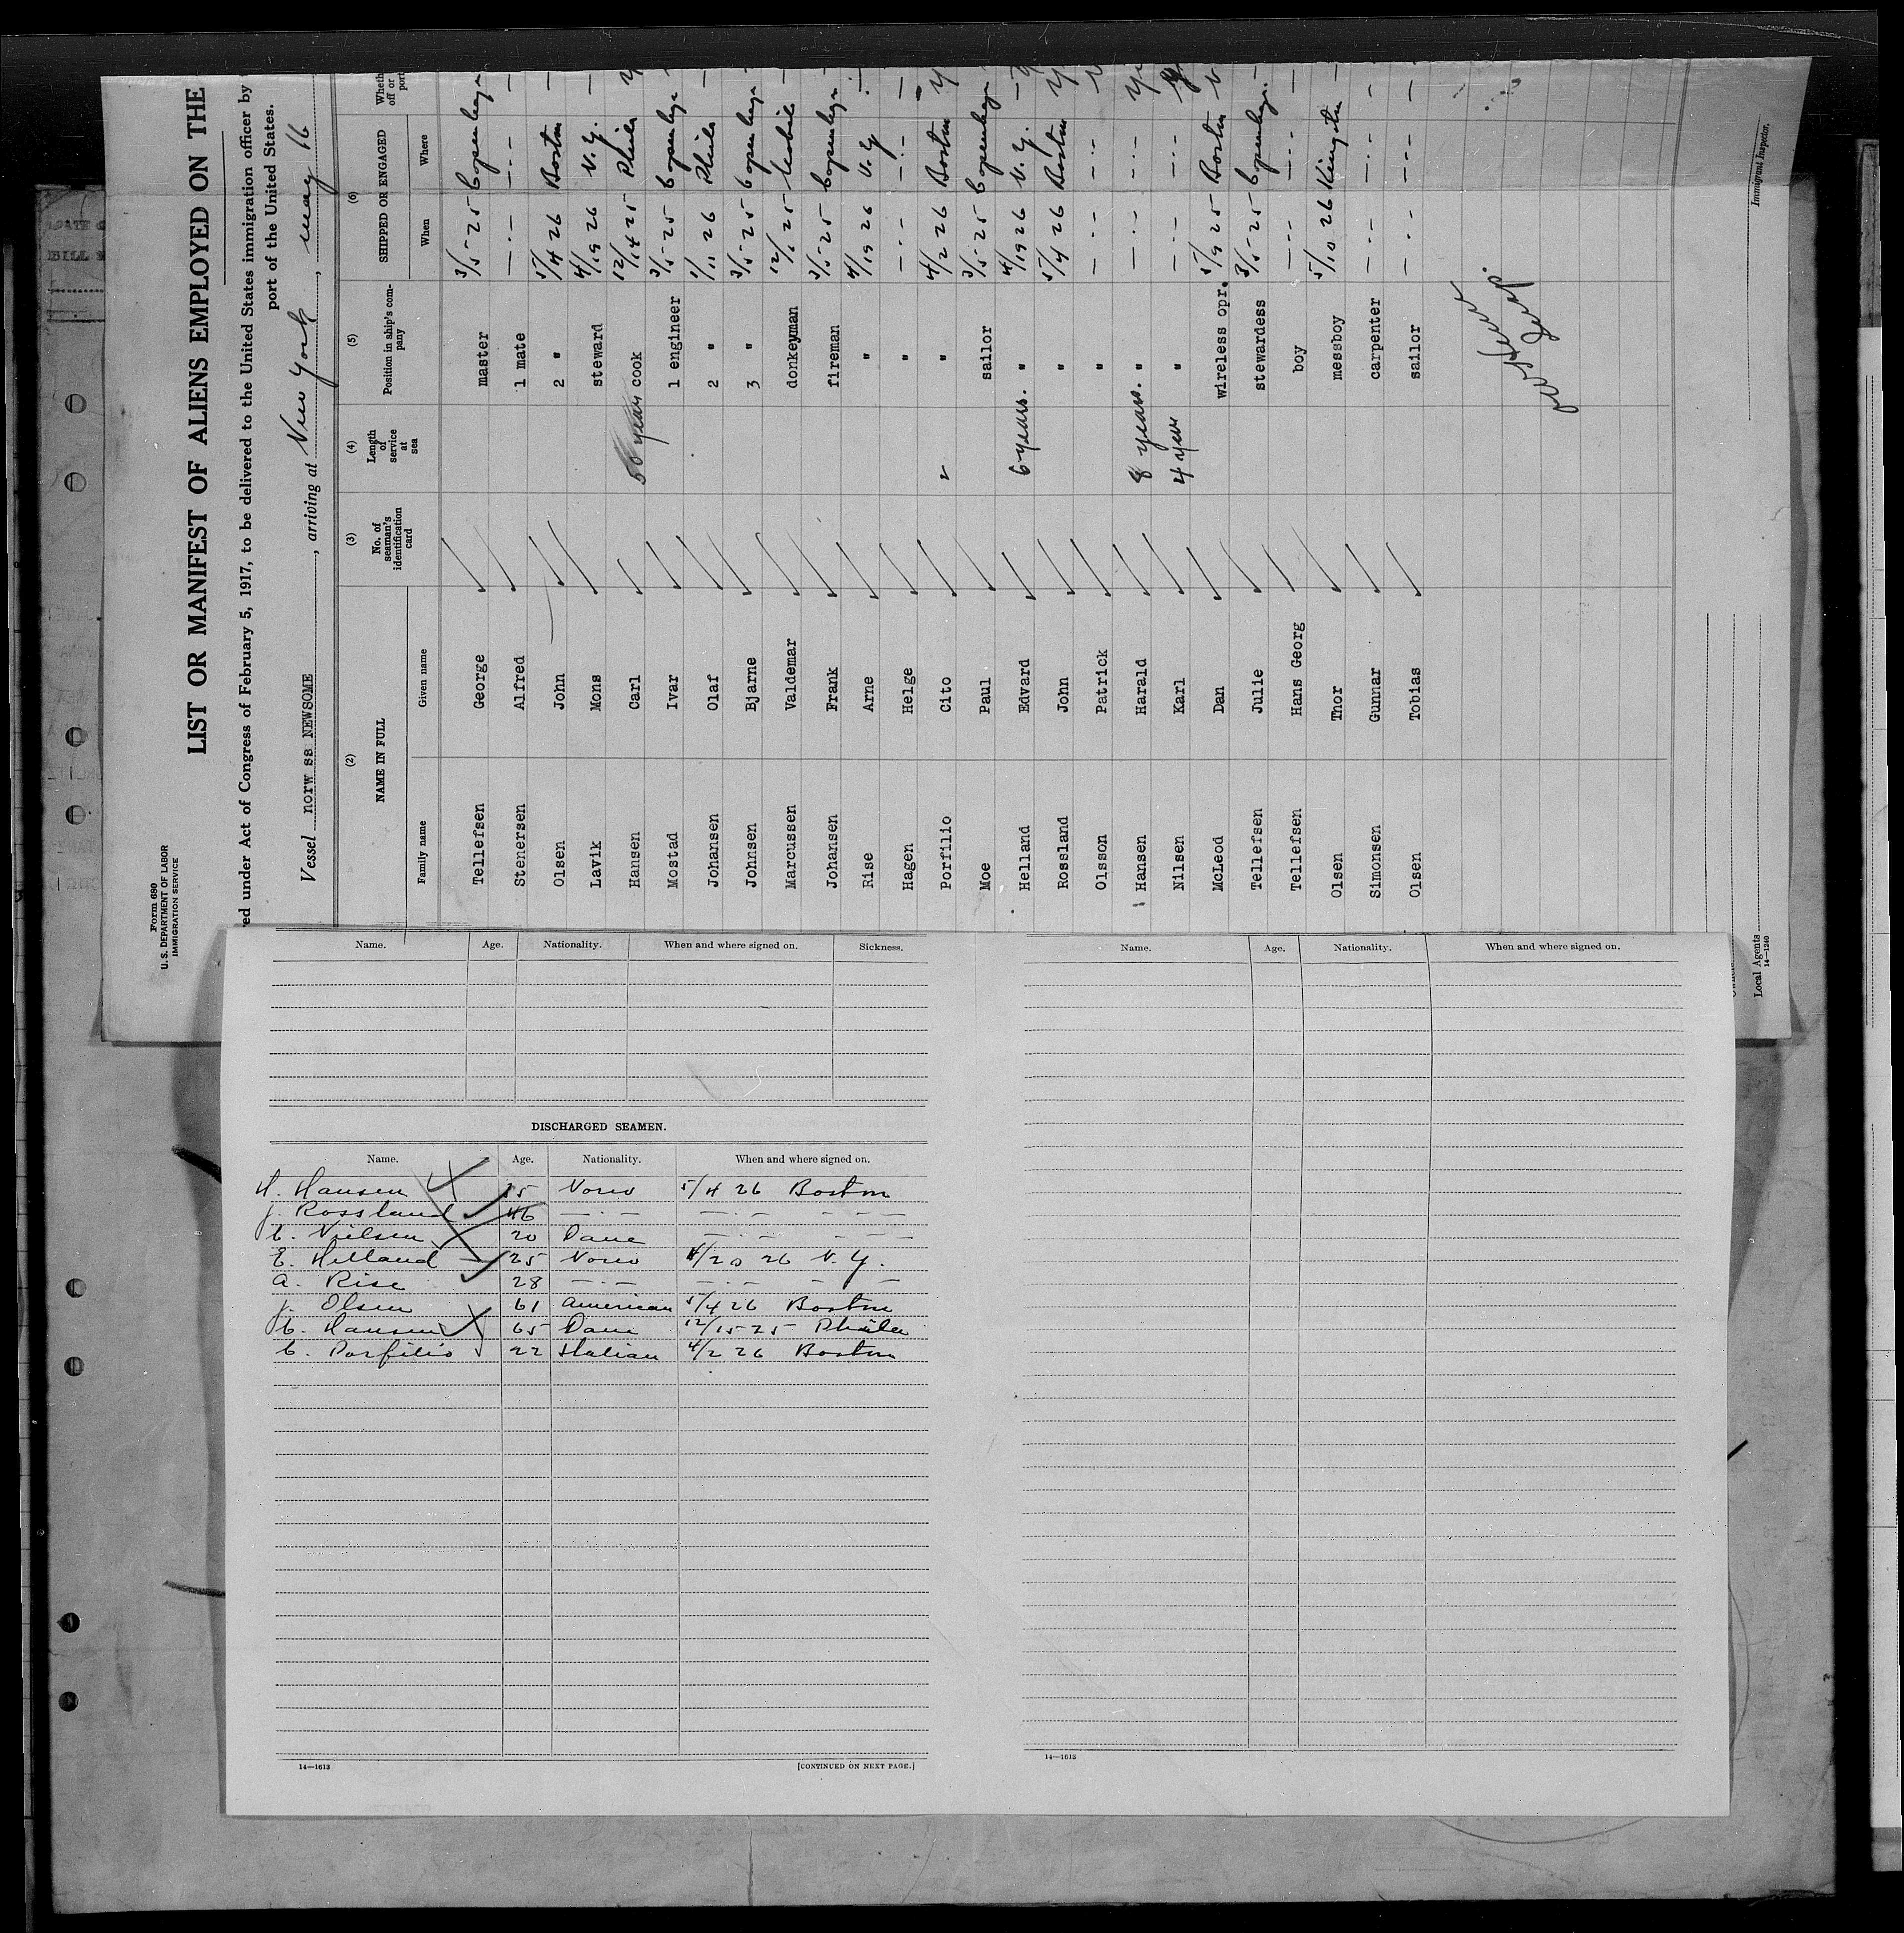 Form 680
U. S. DEPARTMENT OF LABOR
IMMIGRATION SERVICE
LIST OR MANIFEST OF ALIENS EMPLOYED ON THE
ed under Act of Congress of February 5, 1917, to be delivered to the United States immigration officer by
port of the United States.
Vessel norw ss NEWSOME, arriving at New York, may 16
(2) (3) (4) (5) (6)
NAME IN FULL No. of seaman's identification card Length of service at sea Position in ship's company SHIPPED OR ENGAGED Wheth off or port
Family name Given name When Where
Tellefsen George master 3/5-25 Copenhage
Stenersen Alfred 1 mate — · —  — · —
Olsen John 2 " 5/4 26 Boston —
Lavik Mons steward 4/19 26 N.Y. —
Hansen Carl 50 years cook 12/14 25 Phila y
Mostad Ivar 1 engineer 3/5-25 Copenhage —
Johansen Olaf 2 " 1/11 26 Phila —
Johnsen Bjarne 3 " 3/5-25 Copenhage —
Marcussen Valdemar donkeyman 12/1 25 Mobile —
Johansen Frank fireman 3/5-25 Copenhage —
Rise Arne " 4/19 26 N.Y
Hagen Helge " — · — — · — —
Porfilio Cito " 4/2 26 Boston y
Moe Paul sailor 3/5-25 Copenhage
Helland Edvard 6 years. " 4/19 26 N.Y. y
Rossland John " 5/4 26 Boston y
Olsson Patrick " — · — — · —
Hansen Harald 8 years. " — · — — · — Ye
Nilsen Karl 4 year " — · — — · —
McLeod Dan wireless opr. 5/9 25 Boston
Tellefsen Julie stewardess 3/5-25 Copenhage. —
Tellefsen Hans Georg boy — · — — · — —
Olsen Thor messboy 5/10 26 Kingston —
Simonsen Gunnar carpenter — · — — · — —
Olsen Tobias sailor — · — — · — —
Immigrant Inspector.
Local Agents
14—1240
Name. Age. Nationality. When and where signed on. Sickness.
DISCHARGED SEAMEN.
Name. Age. Nationality. When and where signed on.
H. Hansen 25 Norw 5/4 26 Boston
J. Rossland 46 — · — — · — — — —
C. Nielsen 20 Dane — · — — — —
E. Helland 25 Norw 4/20 26 N.Y.
A. Rise 28 — · — — · — — —
J. Olsen 61 American 5/4 26 Boston
C. Hansen 65 Dane 12/15-25 Phila
C. Porfilio 22 Italian 4/2 26 Boston
14—1613 [CONTINUED ON NEXT PAGE.]
Name. Age. Nationality. When and where signed on.
14—1613